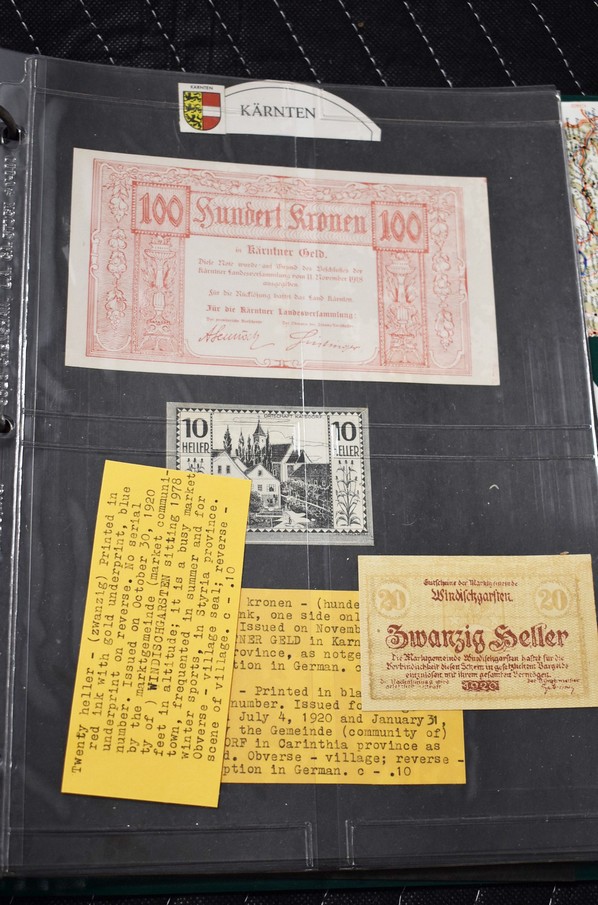 KÄRNTEN
KÄRNTEN
100 Hundert Kronen 100
in Kärntner Geld.
Diese Note wurde auf Grund des Beschlusses der
Kärntner Landesversammlung vom 11. November 1918
ausgegeben.
Für die Einlösung haftet das Land Kärnten.
Für die Kärntner Landesversammlung
10 10
HELLER HELLER
Twenty heller - (zwanzig) Printed in
red ink with gold underprint, blue
underprint on reverse. No serial
number. Issued on October 30, 1920
by the marktgemeinde (market communi-
ty of) WINDISCHGARSTEN sitting 1978
feet in altitude; it is a busy market
town, frequented in summer and for
winter sports in Styria province.
Obverse - village seal; reverse -
scene of village. c - .10
kronen - (hunde
nk, one side onl
Issued on Novemb
NER GELD in Karn
rovince, as notge
tion in German. c
- Printed in bla
number. Issued fo
July 4, 1920 and January 31,
the Gemeinde (community of)
ORF in Carinthia province as
d. Obverse - village; reverse -
ption in German. c - .10
20 Gutscheine der Marktgemeinde 20
Windischgarsten
Zwanzig Heller
Die Marktgemeinde Windischgarsten haftet für die
Verbindlichkeit diesen Schein im gesetzlichen Bargelde
einzulösen mit ihrem gesamten Vermögen.
1920